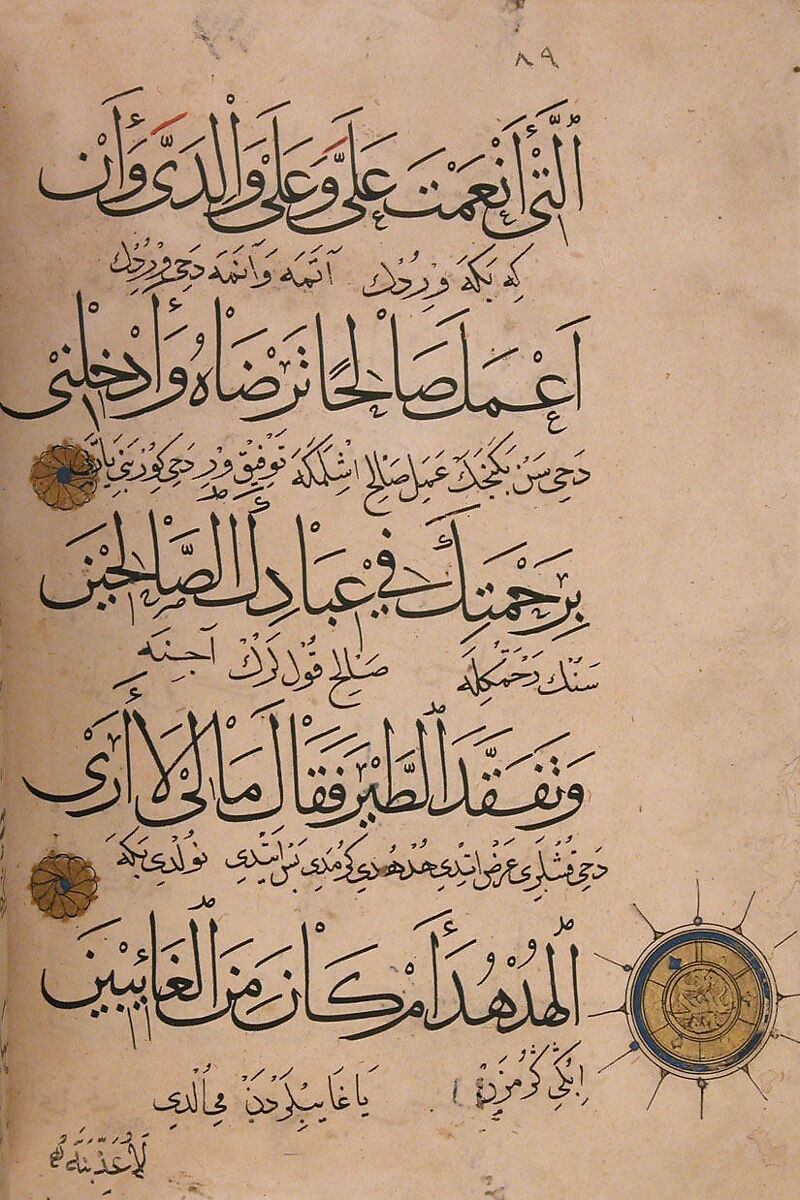 ٨٩
ٱلَّتِىْ أَنْعَمْتَ عَلَىَّ وَعَلٰى وَالْدَىَّ وَأَنْ
كه بكه
أَعْمَلَ صَالِحًا تَرْضَاهُ وَأَدْخِلْنِىْ
دخى سن بكنجك عمل صالح اشلمكه توفيق ور دخى
بِرَحْمَتِكَ فِي عِبَادِكَ الصَّالِحِينَ
سنك رحمتكله صالح قول لرك اجنه
وَتَفَقَّدَ ٱلطَّيْرَ فَقَالَ مَالِىَ لَا أَرَىْ
دخى قشلرى عرض اتدى هدهدى كرمدى بس ايتدى نولدى بكه
ٱلْهُدْهُدَ أَمْ كَانَ مِنَ ٱلْغَائِبِينَ
كرمزن يا غايبلردن مى الدى
لَأُعَذِّبَنَّهُ